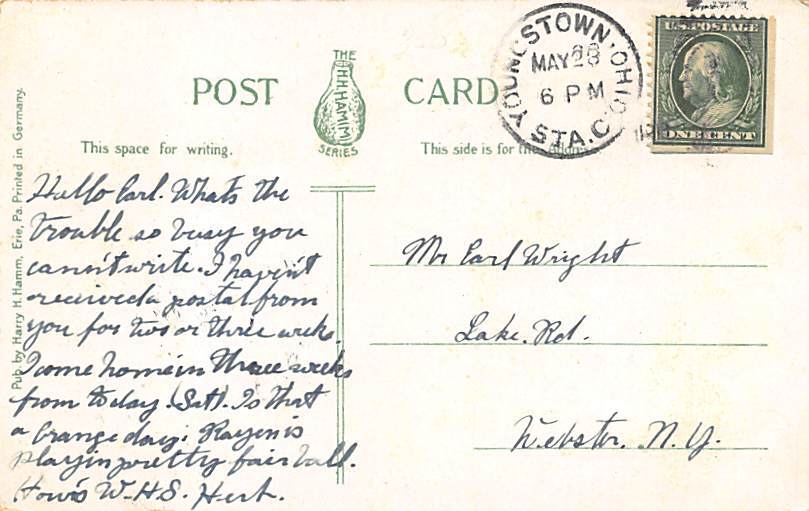 POST CARD
THE
H.H.HAMM
SERIES
This space for writing.
This side is for the Address
YOUNGSTOWN, OHIO
MAY 28
6 PM
STA. C
U.S. POSTAGE
ONE CENT
Pub. by Harry H. Hamm, Erie, Pa. Printed in Germany.
Hello Carl. Whats the
trouble so busy you
cann't write. I haven't
received a postal from
you for two or three weeks.
I come home in three weeks
from to day. (Sat). Is that
a Grange day; Rayen is
playin pretty fair ball.
How's W-H-S. Hert.
Mr Carl Wright
Lake. Rd.
Webster. N. Y.